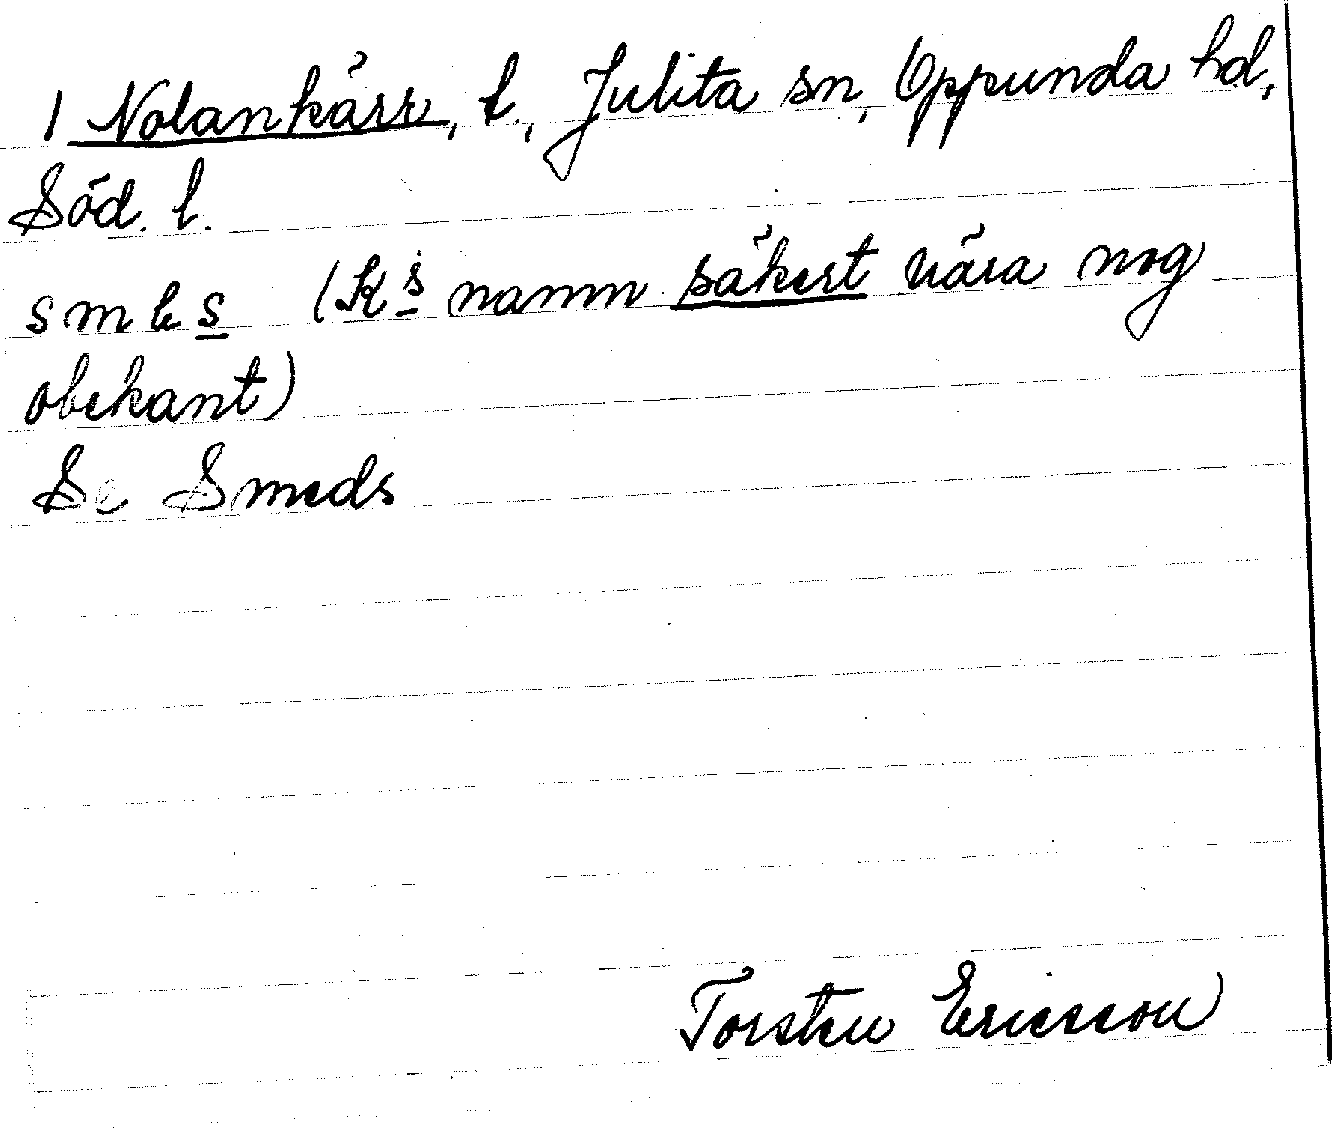 1 Nolankärr, t., Julita sn, Oppunda hd,
Söd. l.
s m e s (Ks namn säkert nära nog
obekant)
Se Smeds
Torsten Ericsson